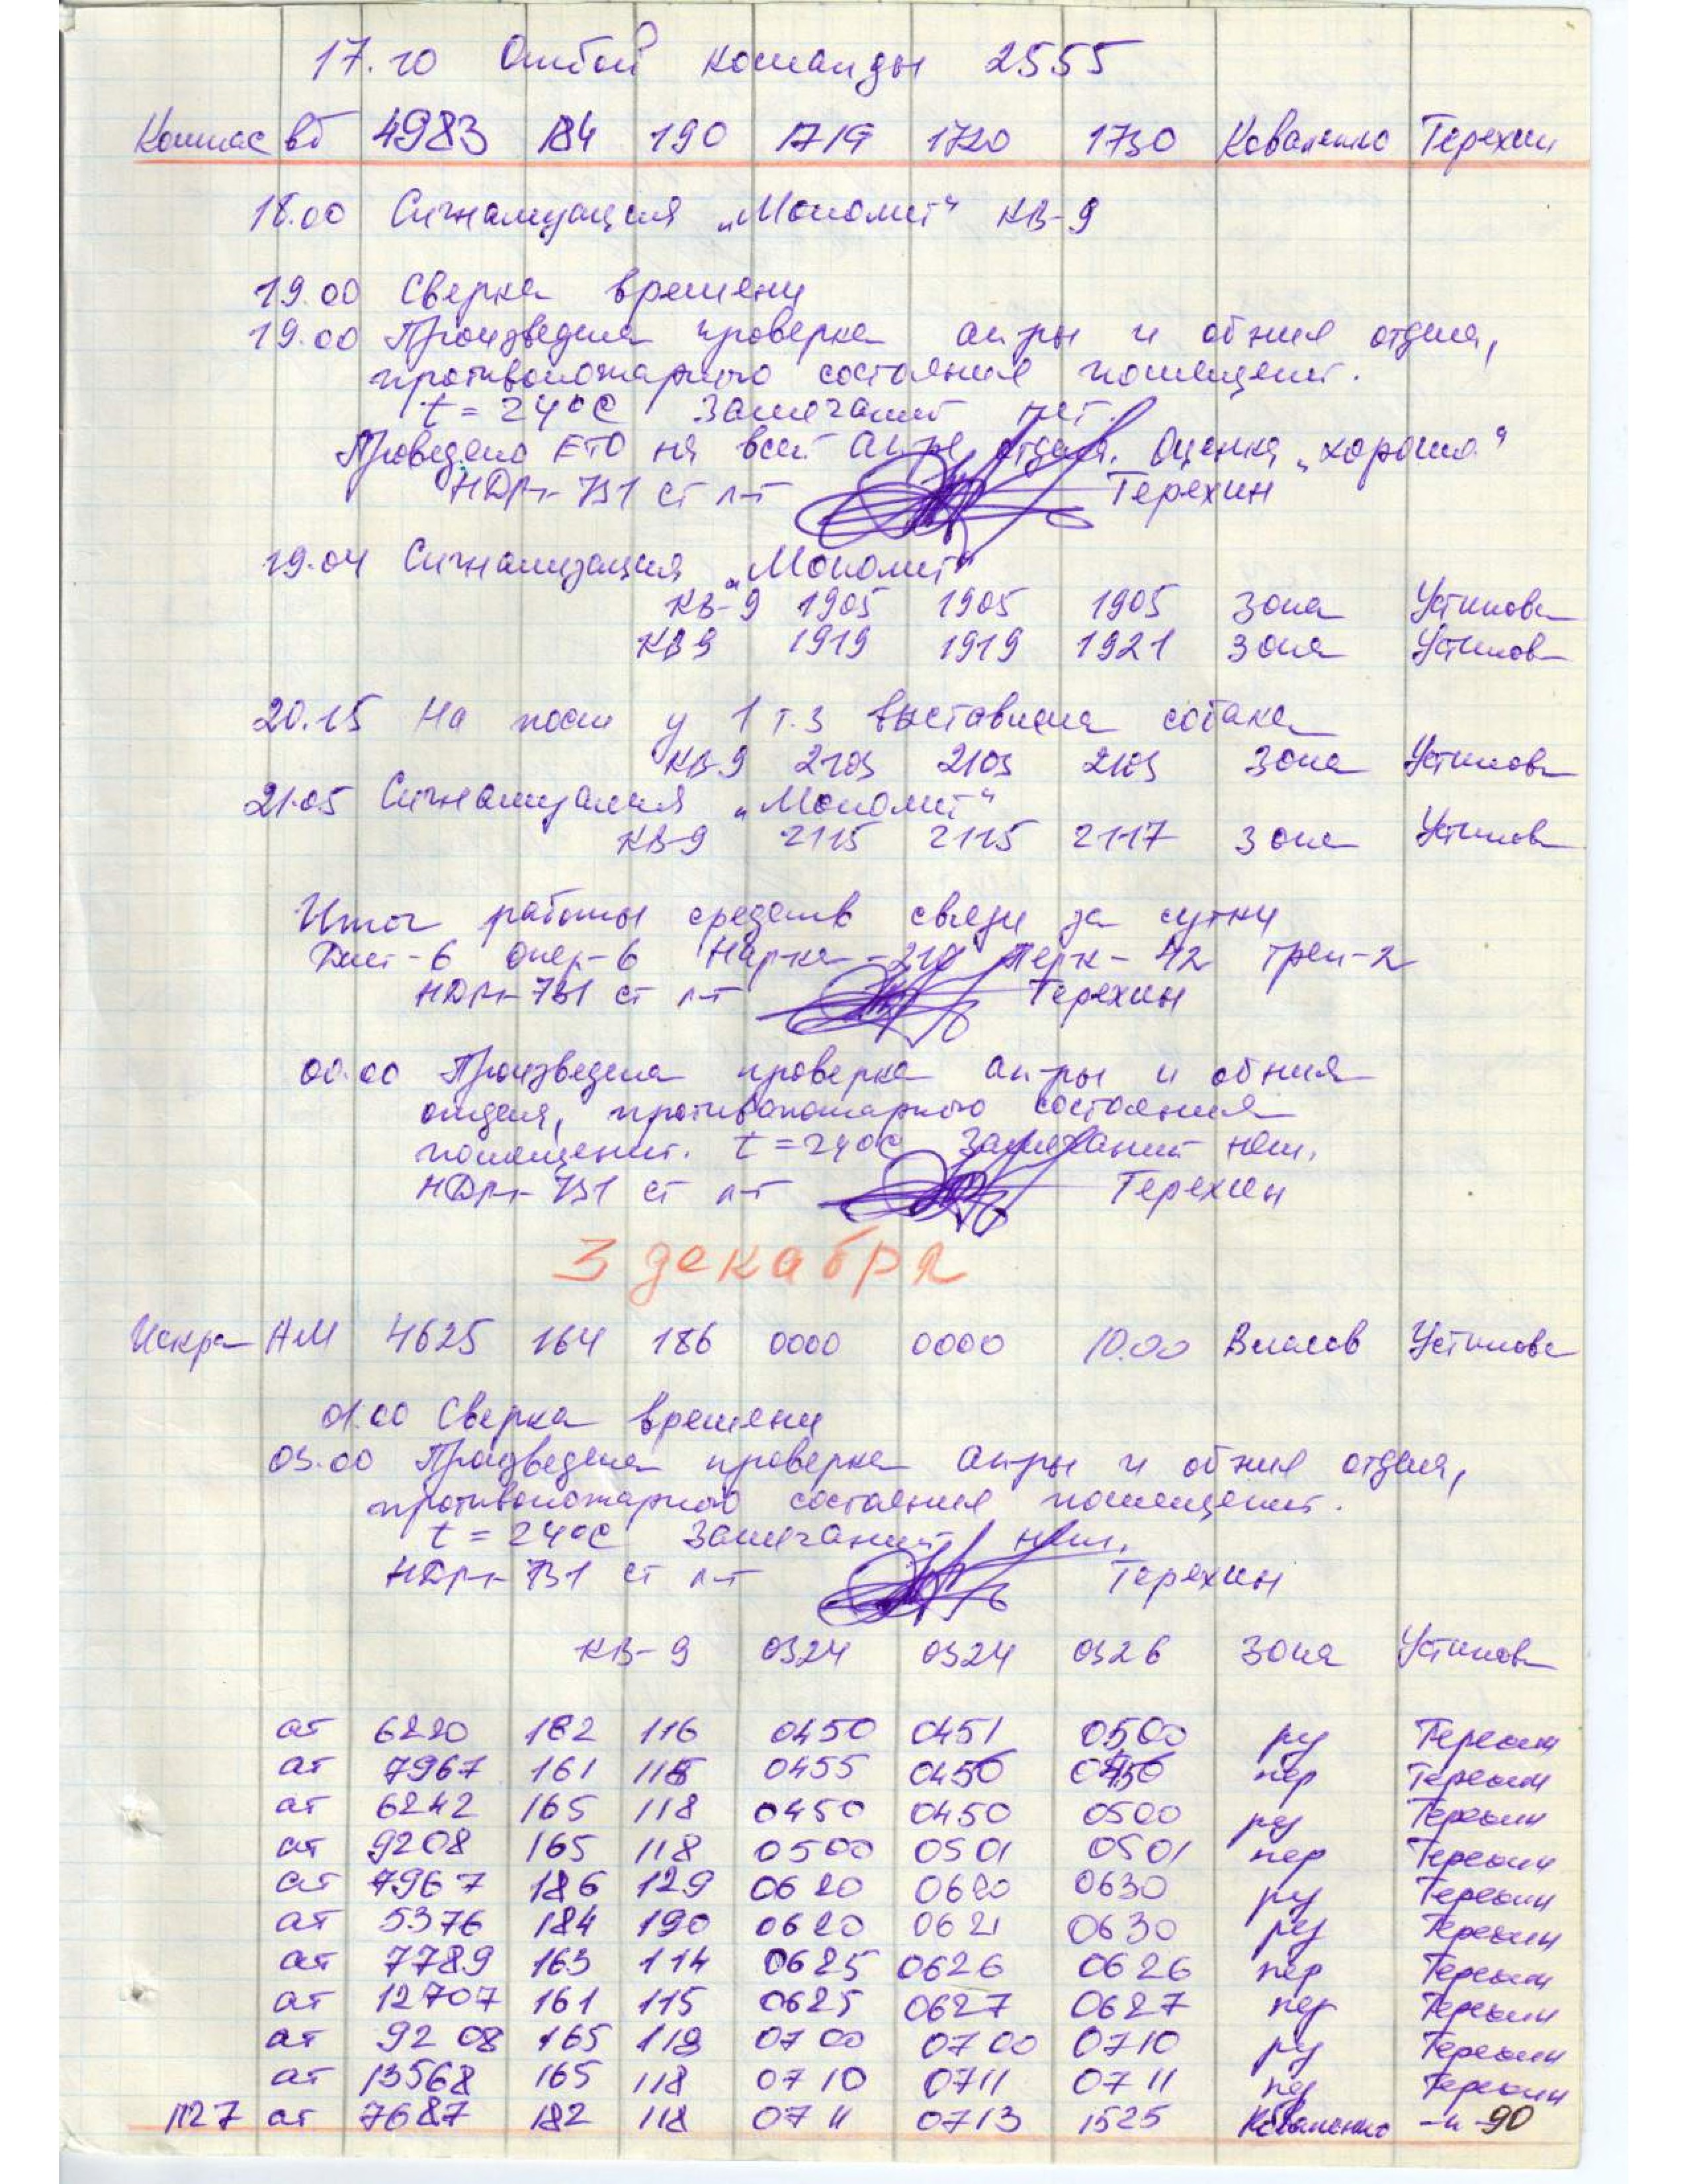 17.20 Отбой команды 2555
Компас вб 4983 184 190 1719 1720 1730 Коваленко Терехин
18.00 Сигнализация „Монолит" КВ-9
19.00 Сверка времени
19.00 Произведена проверка ап-ры и обния отдела,
противопожарного состояния помещений.
t = 24°С Замечаний нет.
Проведено ЕТО на всей ап-ре отдела. Оценка „хорошо"
ст л-т Терехин
19.04 Сигнализация „Монолит"
КВ-9 1905 1905 1905 Зона Устинов
КВ9 1919 1919 1921 Зона Устинов
20.15 На посту у 1 т.з выставлена собака
КВ-9 2103 2103 2103 Зона Устинов
21.05 Сигнализация „Монолит"
КВ-9 2115 2115 2117 Зона Устинов
Итог работы средств связи за сутки
опер-6 трен-2
ст л-т Терехин
00.00 Произведена проверка ап-ры и обния
отдела, противопожарного состояния
помещений. t = 24°С Замечаний нет.
ст л-т Терехин
3 декабря
Искра АМ 4625 164 186 0000 0000 10.00 Власов Устинов
01.00 Сверка времени
03.00 Произведена проверка ап-ры и обния отдела,
противопожарного состояния помещений.
t = 24°С Замечаний нет.
ст л-т Терехин
КВ-9 0324 0324 0326 Зона Устинов
ат 6220 182 116 0450 0451 0500 ру Терехин
ат 7967 161 0455 пер Терехин
ат 6242 165 118 0450 0450 0500 ру Терехин
ат 9208 165 118 0500 0501 0501 пер Терехин
ат 7967 186 129 0620 0620 0630 ру Терехин
ат 5376 184 190 0620 0621 0630 ру Терехин
ат 7789 163 114 0625 0626 0626 пер Терехин
ат 12707 161 115 0625 0627 0627 пер Терехин
ат 9208 165 118 0700 0700 0710 ру Терехин
ат 13568 165 118 0710 0711 0711 Терехин
П27 ат 7687 182 118 0711 0713 1525 Коваленко -"- 90